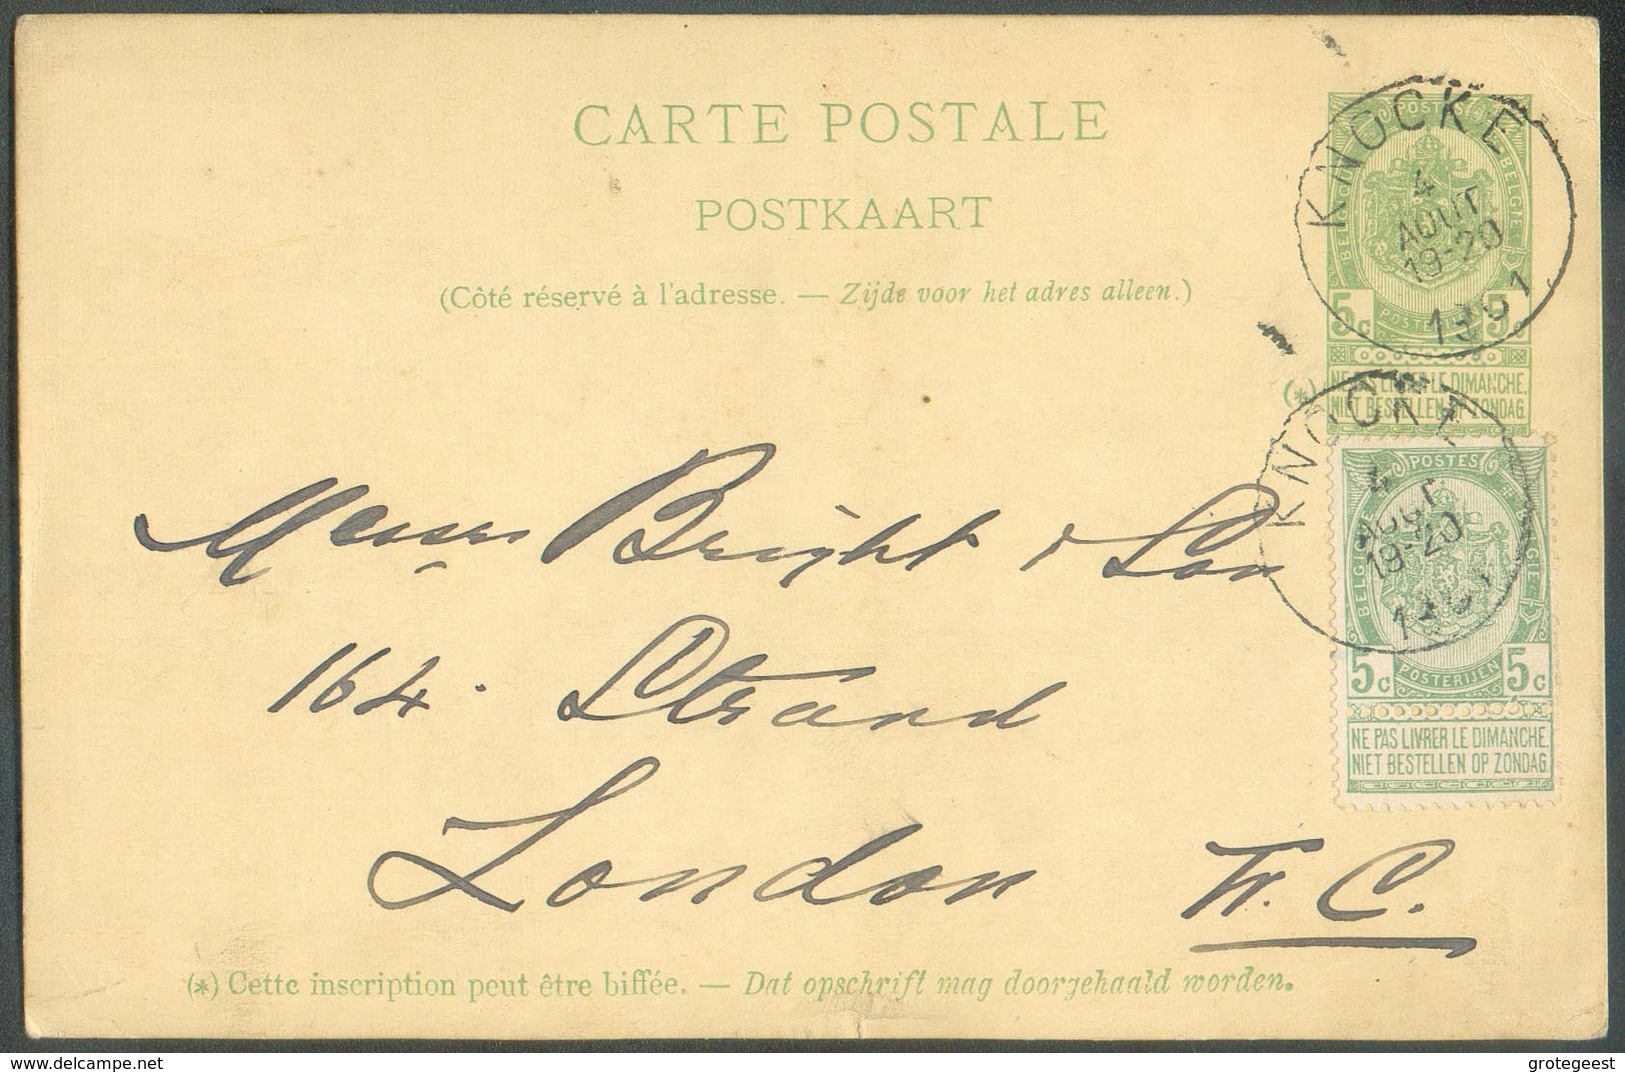 CARTE POSTALE
POSTKAART
(Côté réservé à l'adresse. — Zijde voor het adres alleen.)
POSTES
BELGIQUE BELGIE
5c POSTERIJEN 5c
(*) NE PAS LIVRER LE DIMANCHE.
NIET BESTELLEN OP ZONDAG.
KNOCKE
4
AOUT
19-20
1901
KNOCKE
4
AOUT
19-20
1901
POSTES
BELGIQUE BELGIE
5c POSTERIJEN 5c
NE PAS LIVRER LE DIMANCHE.
NIET BESTELLEN OP ZONDAG.
Messrs Bright & Son
164. Strand
London W. C.
(*) Cette inscription peut être biffée. — Dat opschrift mag doorgehaald worden.
delcampe.net
grotegeest